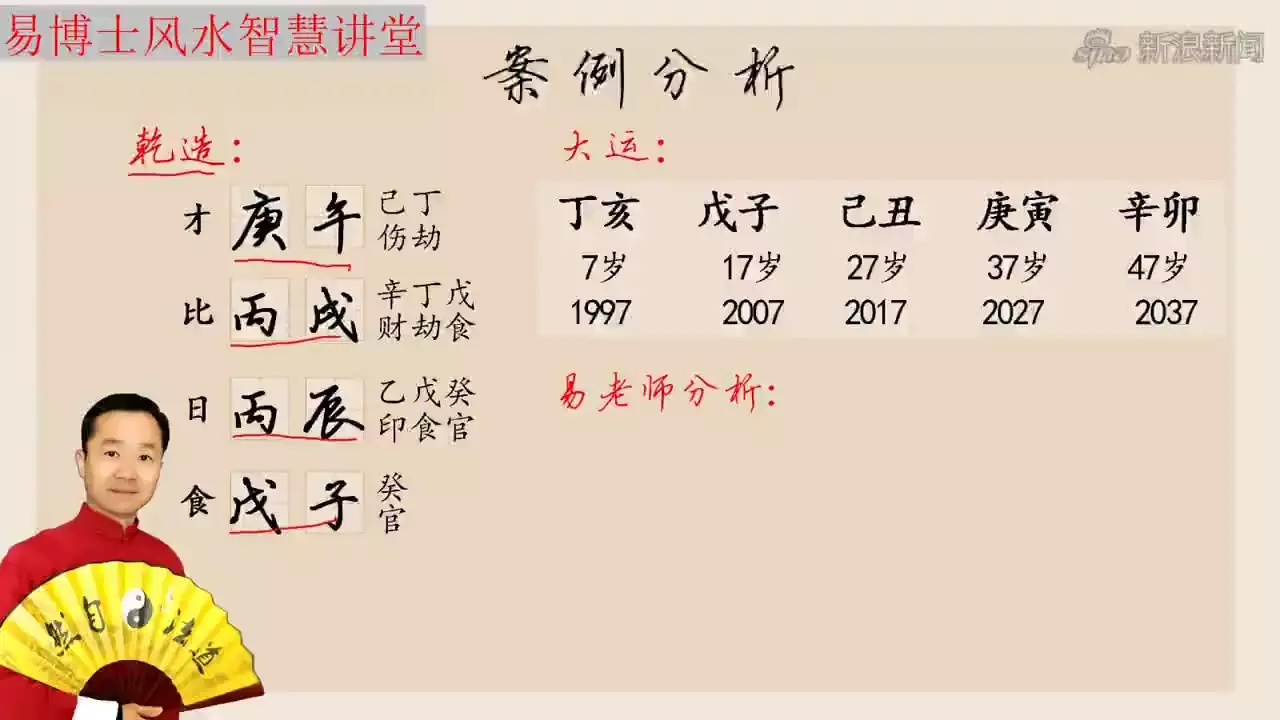 易博士风水智慧讲堂
新浪新闻
案例分析
乾造：
才 庚午 己丁
伤劫
比 丙戌 辛丁戊
财劫食
日 丙辰 乙戊癸
印食官
食 戊子 癸
官
大运：
丁亥 戊子 己丑 庚寅 辛卯
7岁 17岁 27岁 37岁 47岁
1997 2007 2017 2027 2037
易老师分析：
道法自然